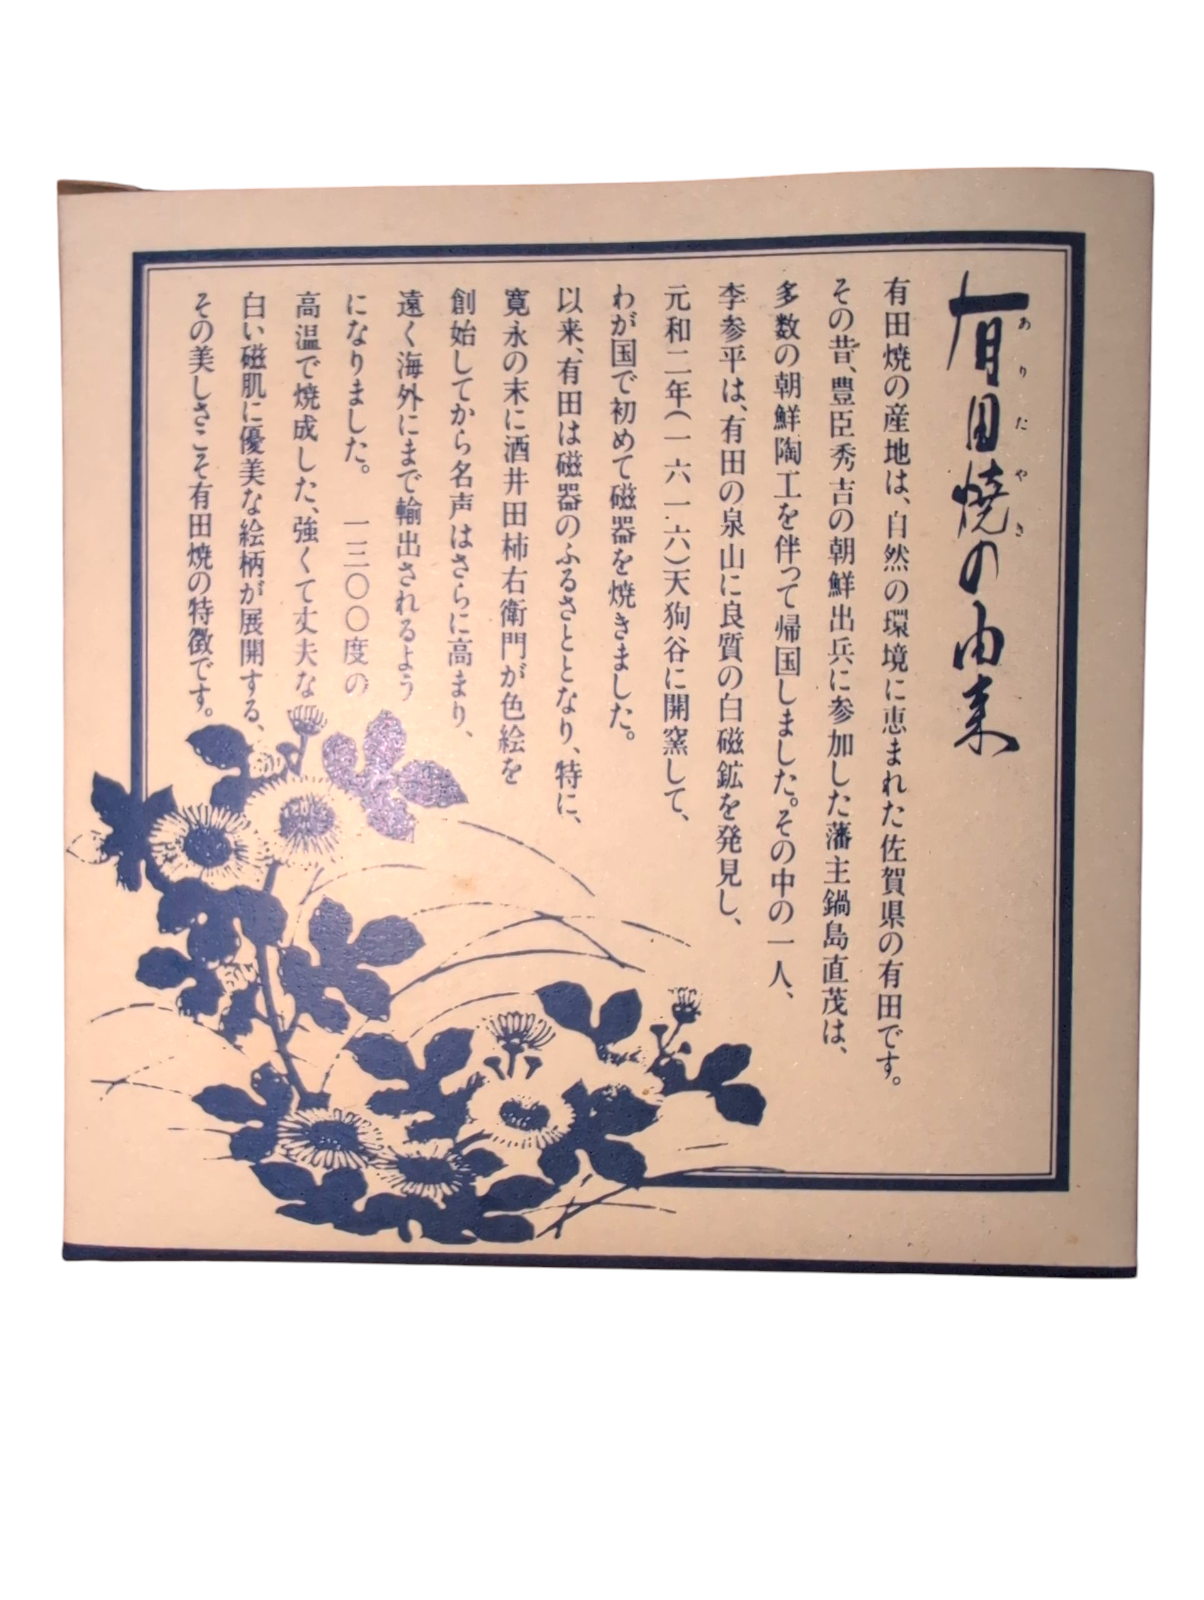 有田焼の由来
ありたやき
有田焼の産地は、自然の環境に恵まれた佐賀県の有田です。
その昔、豊臣秀吉の朝鮮出兵に参加した藩主鍋島直茂は、
多数の朝鮮陶工を伴って帰国しました。その中の一人、
李参平は、有田の泉山に良質の白磁鉱を発見し、
元和二年(一六一六)天狗谷に開窯して、
わが国で初めて磁器を焼きました。
以来、有田は磁器のふるさととなり、特に、
寛永の末に酒井田柿右衛門が色絵を
創始してから名声はさらに高まり、
遠く海外にまで輸出されるよう
になりました。 一三〇〇度の
高温で焼成した、強くて丈夫な
白い磁肌に優美な絵柄が展開する、
その美しさこそ有田焼の特徴です。